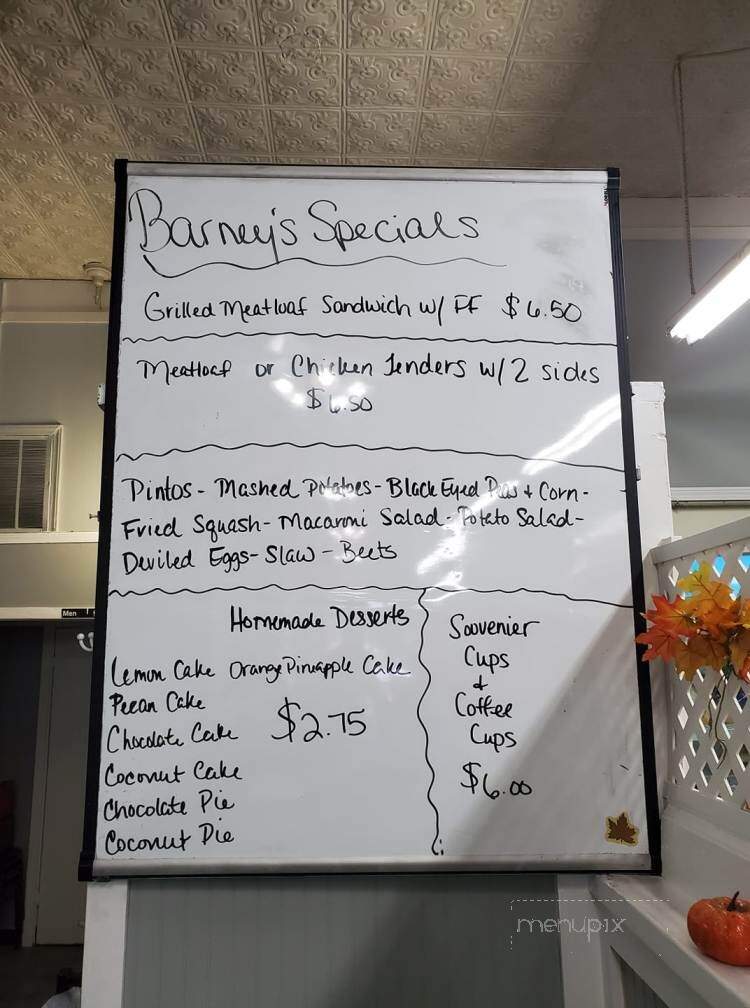 Barney's Specials
Grilled Meatloaf Sandwich w/ FF $6.50
Meatloaf or Chicken Tenders w/2 sides
$6.50
Pintos - Mashed Potatoes - Black Eyed Peas + Corn -
Fried Squash - Macaroni Salad - Potato Salad -
Deviled Eggs - Slaw - Beets
Homemade Desserts
Lemon Cake Orange Pineapple Cake
Pecan Cake
Chocolate Cake $2.75
Coconut Cake
Chocolate Pie
Coconut Pie
Soovenier
Cups
&
Coffee
Cups
$6.00
Men
menupix